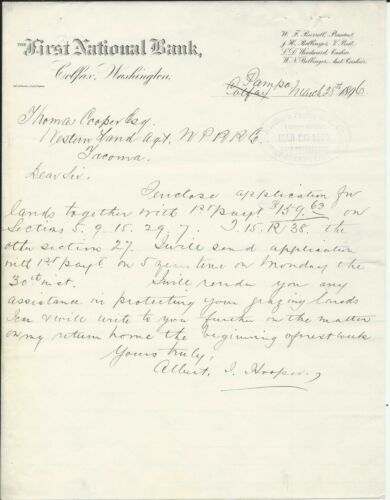 THE First National Bank,
Colfax, Washington.
W. F. Burrell, President
J. H. Bellinger, V. Prest.
L. D. Woodward, Cashier.
W. N. Bellinger, Asst. Cashier.
Pampa
Colfax, March 28th 1896
Thomas Cooper Esq.
Western Land Agt. N P R R Co.
Tacoma.
Dear Sir.
I enclose application for
lands together with 1st paymt $159.63 on
Sections 5. 9. 15. 29. 7. T. 15. R. 38. the
other section 27. I will send application
with 1st paymt on 5 years time on Monday the
30th inst. I will render you any
assistance in protecting your grazing lands
I can & will write to you further on the matter
on my return home the beginning of next week.
Yours truly,
Albert. J. Hooper.